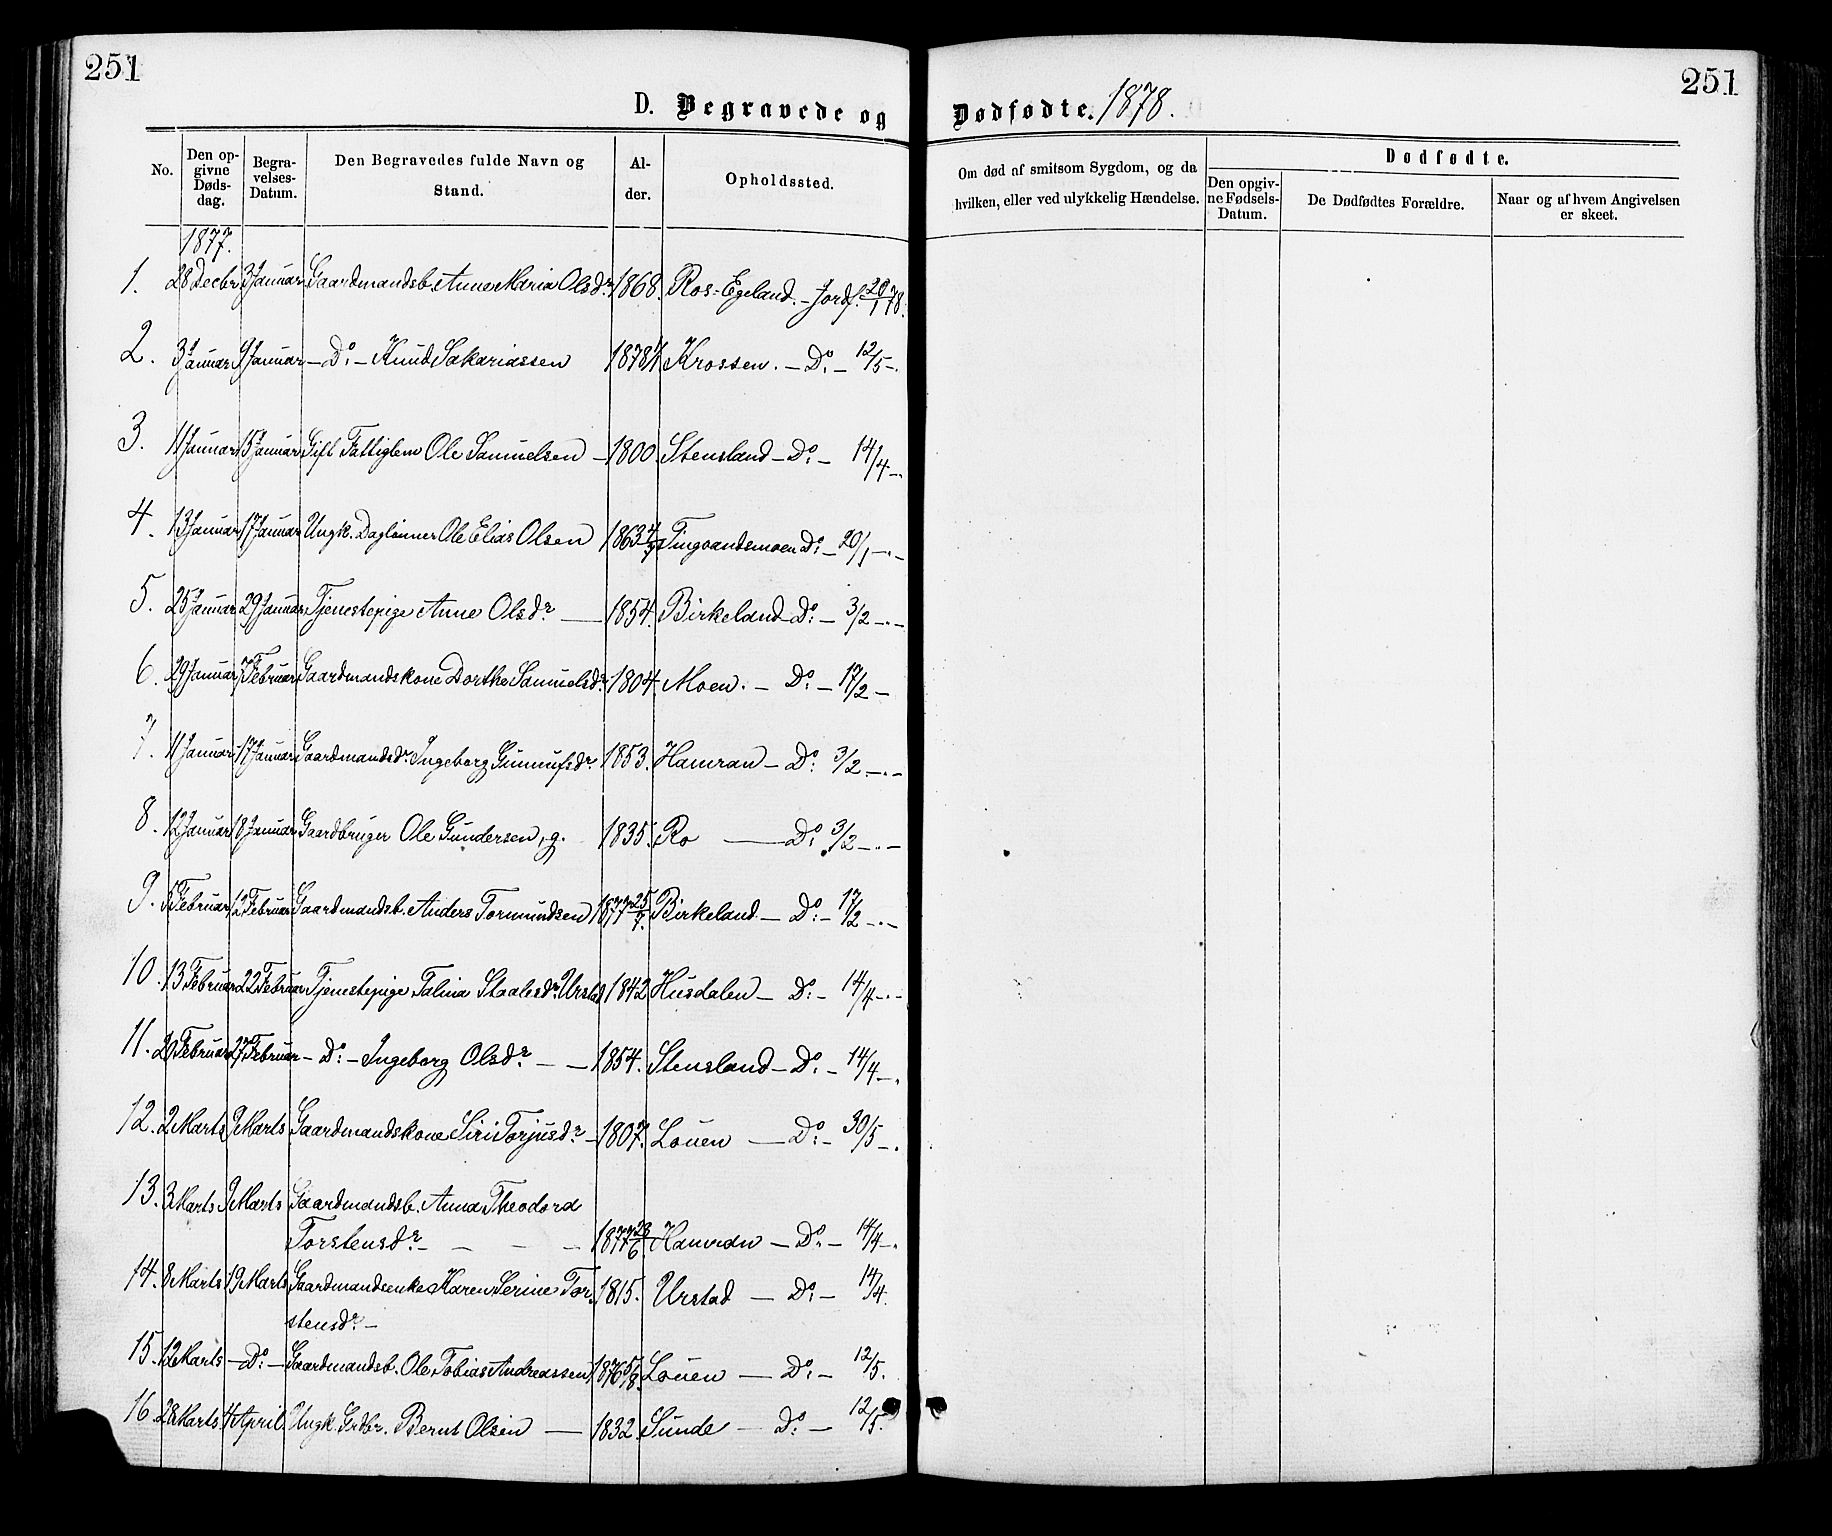 251
251
D. Begravede og Dødfødte. 1878.
No.
Den opgivne Dødsdag.
Begravelses-Datum.
Den Begravedes fulde Navn og Stand.
Alder.
Opholdssted.
Om død af smitsom Sygdom, og da hvilken, eller ved ulykkelig Hændelse.
Dødfødte.
Den opgivne Fødsels-Datum.
De Dødfødtes Forældre.
Naar og af hvem Angivelsen er skeet.
1877.
1. 28 Decbr 3 Januar Gaardmandsb. Anne Maria Olsdr. 1868. Ros-Egeland. – Jordf. 20/1 78.
2. 3 Januar 9 Januar – Do: – Knud Sakariassen 1878 1/1 Krossen. – Do: – 12/5 –.
3. 11 Januar 15 Januar Gift Fattiglem Ole Samuelsen – 1800. Stensland – Do: – 14/4 –.
4. 13 Januar 17 Januar Ungk. Daglønner Ole Elias Olsen 1863 Tingvandsmoen Do: – 20/1 –.–
5. 25 Januar 29 Januar Tjenestepige Anne Olsdr. — 1854. Birkeland – Do: – 3/2 –.–
6. 29 Januar 7 Februar Gaardmandskone Dorthe Samuelsdr. 1804. Moen. – Do: – 17/2 –
7. 11 Januar 17 Januar Gaardmandsdr. Ingeborg Gunnufsdr. 1853. Hamran – Do: 3/2 –.–
8. 12 Januar 18 Januar Gaardbruger Ole Gundersen, g. 1835. Ro — Do: 3/2 –.–
9. 5 Februar 12 Februar Gaardmandsb. Anders Tormundsen 1877 25/7. Birkeland – Do: – 17/2 –.–
10. 13 Februar 22 Februar Tjenestepige Talina Staalesdr. Urstad 1842 Husdalen – Do: – 14/4 –.–
11. 20 Februar 27 Februar – Do: – Ingeborg Olsdr. – – 1854. Stensland – Do: – 14/4 –.
12. 2 Marts 9 Marts Gaardmandskone Siri Torjusdr. – 1807. Louen — Do: – 30/5 –.
13. 3 Marts 9 Marts Gaardmandsb. Anna Theodora
Torstensdr. – – – – 1877 23/6. Hamran – Do: – 14/4 –.
14. 8 Marts 19 Marts Gaardmandsenke Karen Serine Tor- 1815. Urstad – Do: – 14/4.
stensdr. –
15. 12 Marts – Do: – Gaardmandsb. Ole Tobias Andreassen 1876 5/8. Louen — Do: – 12/5.
16. 28 Marts 4 April Ungk. Grdbr. Bernt Olsen — 1832. Sunde – Do: – 12/5.